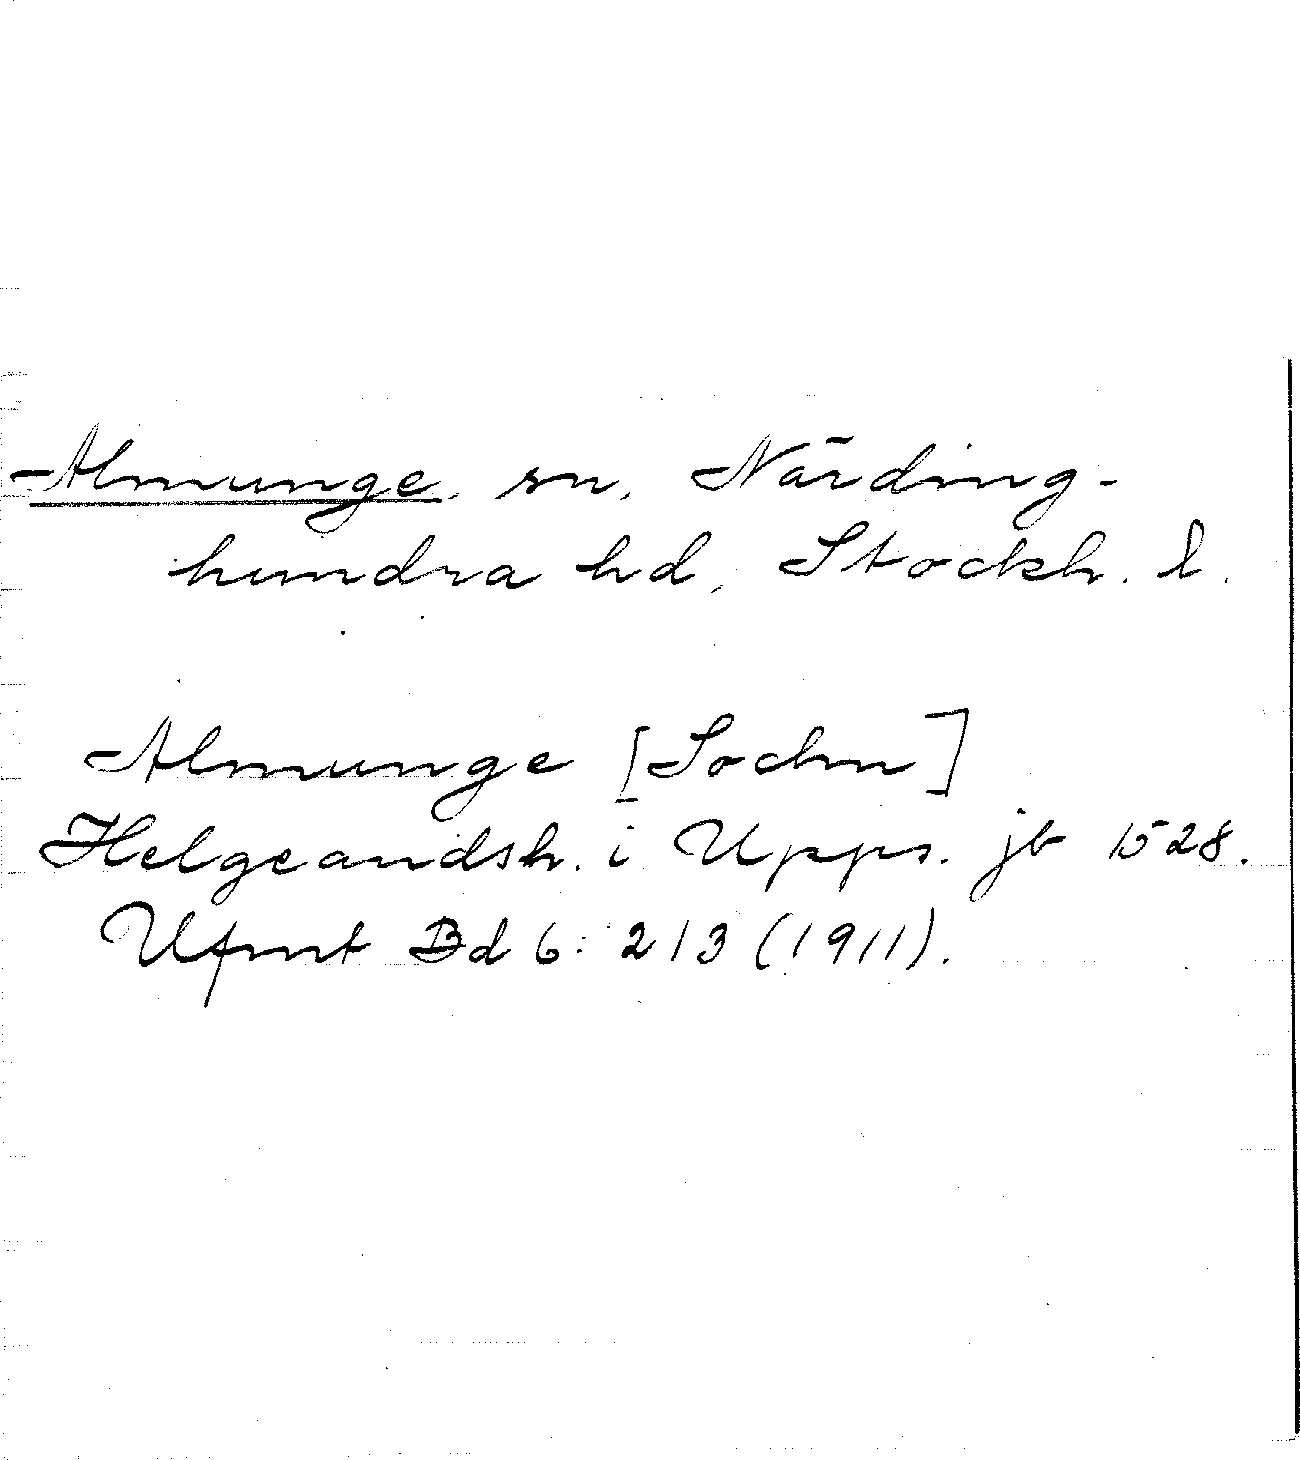 Almunge. sn, Närding-
hundra hd, Stockh. l.
Almunge [Sochn]
Helgeandsh. i Upps. jb 1528.
Ufmt Bd 6: 213 (1911).